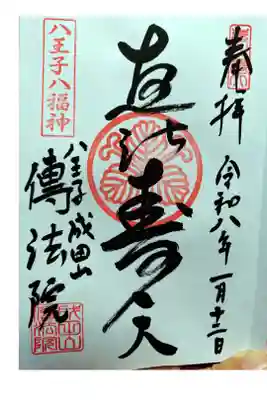 奉拝
令和八年一月十二日
恵比寿天
八王子成田山
傳法院
八王子八福神